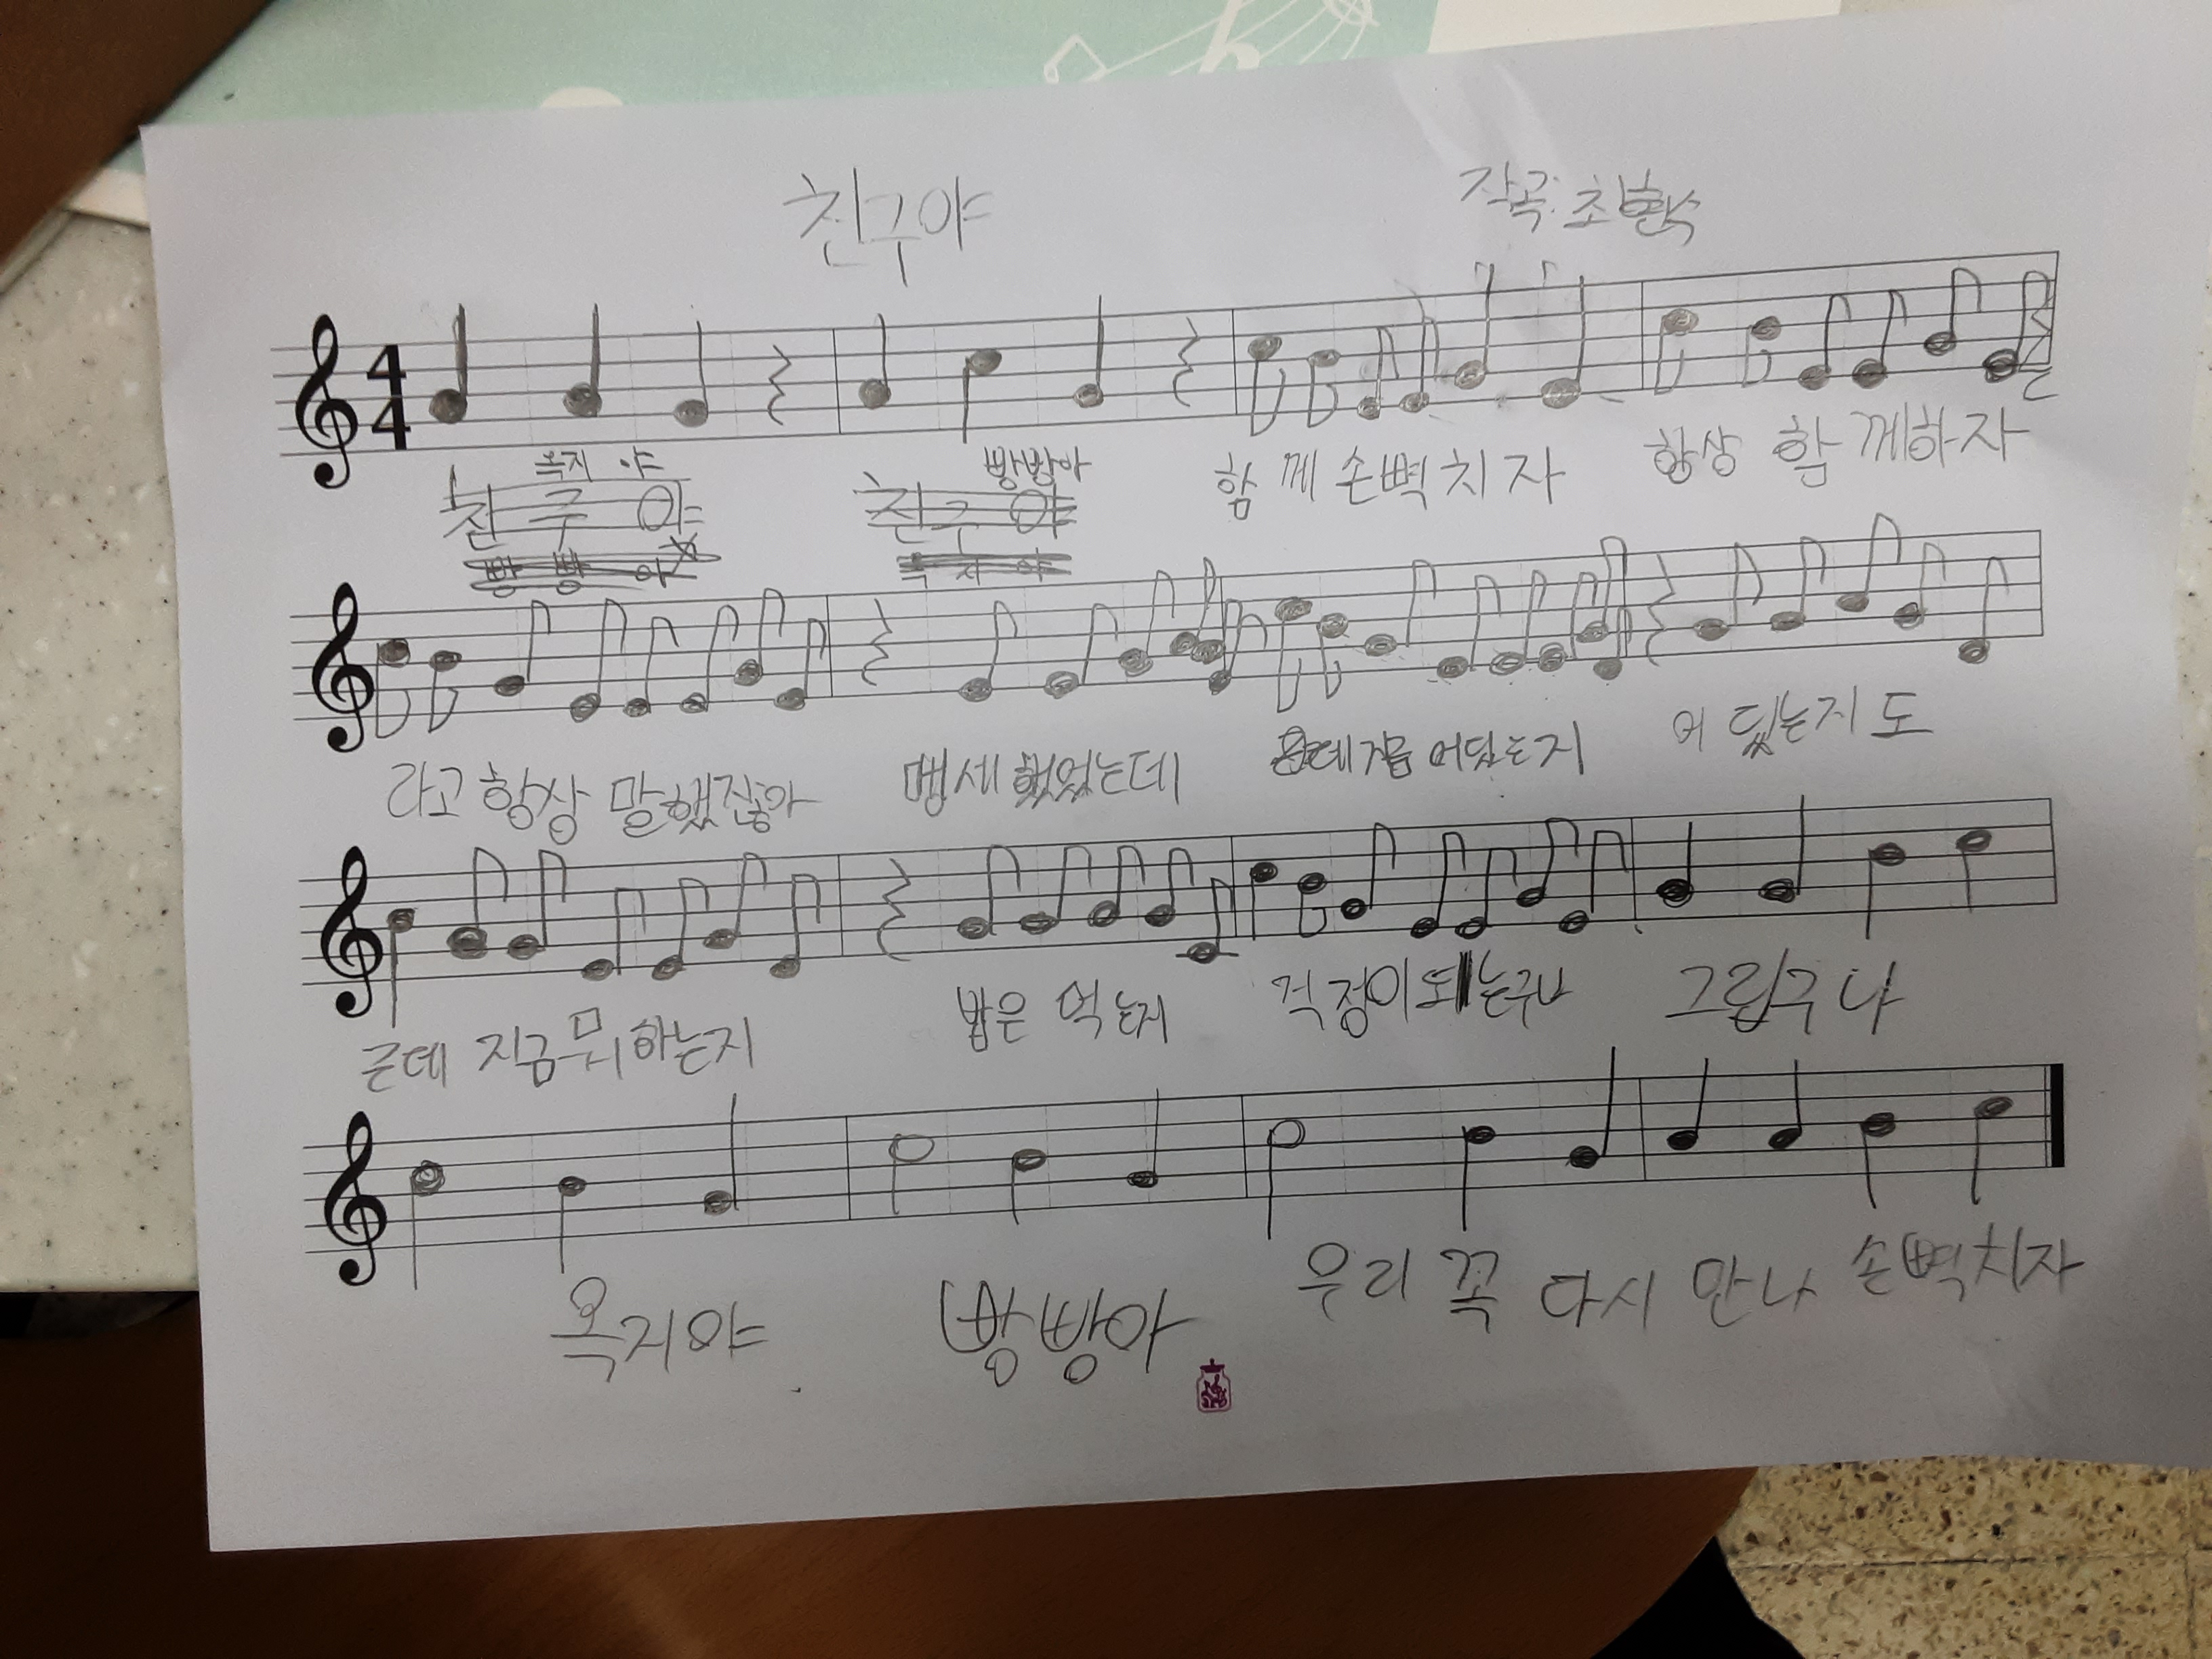 친구야
작곡: 최현수
4
4
옥지 야 빵방아 함께 손뼉치자 항상 함께하자
친구야 친구야
빵빵아 옥지야
라고 항상 말했잖아 맹세했었는데 근데지금 어딨는지 어딨는지도
근데 지금 뭐하는지 밥은 먹는지 걱정이 되는구나 그립구나
옥지야 빵방아 우리 꼭 다시 만나 손뼉치자